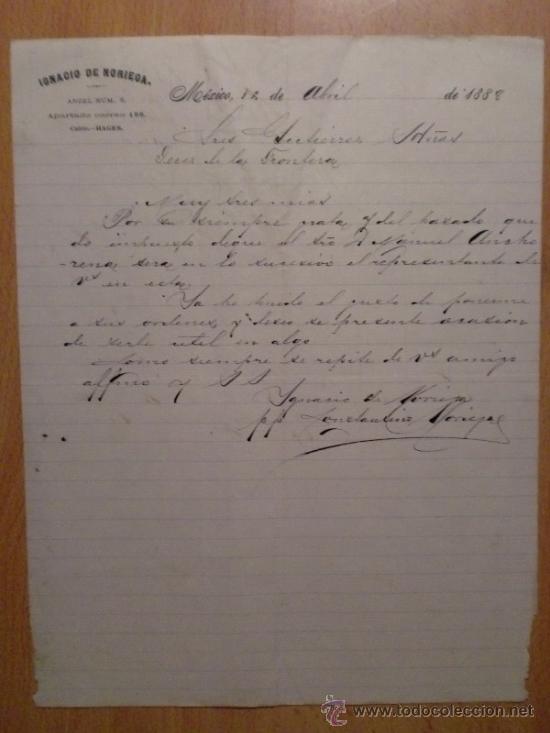 IGNACIO DE NORIEGA.
ANGEL NÚM. 5.
APARTADO CORREO 198.
Cable.—HAGER.
México, 12 de Abril de 1888
Sres Gutierrez Hnos
Jerez de la Frontera
Muy Sres mios
Por su siempre grata 7 del pasado quedo
impuesto de que el Sr D Manuel
será en lo sucesivo el representante de
Vs en esta.
Ya he tenido el gusto de ponerme
a sus ordenes, y deseo se presente ocasion
de serle util en algo
Como siempre se repite de Vs amigo
affmo y SS
Ignacio de Noriega
pp Constantino Noriega
http://www.todocoleccion.net